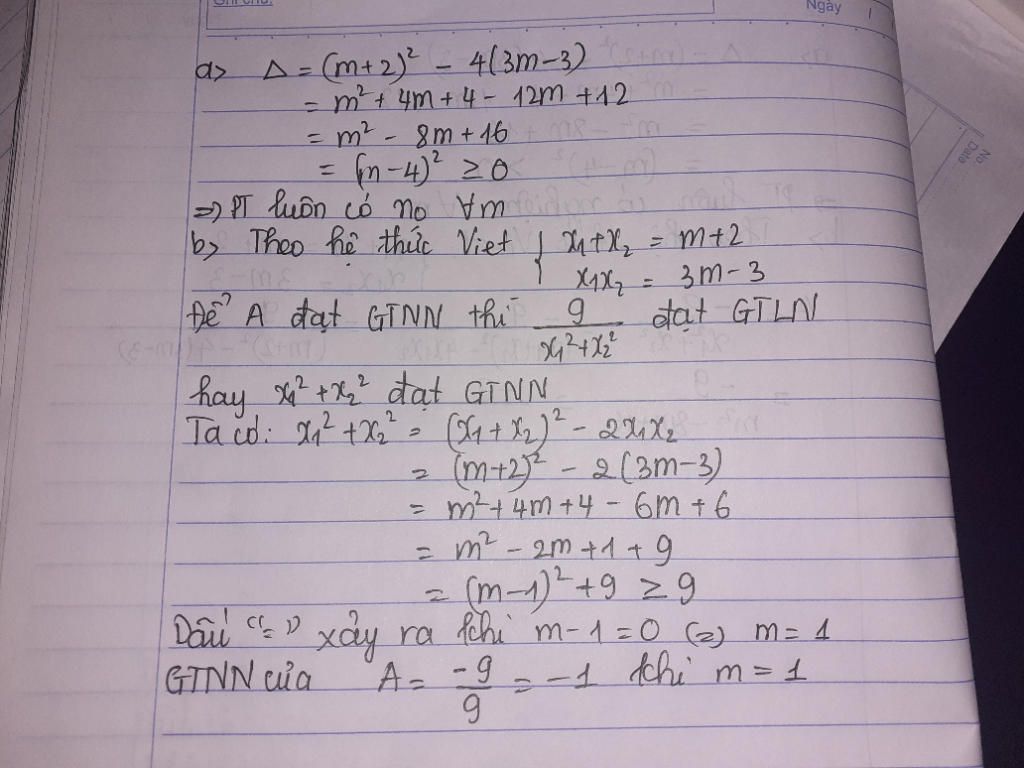 Ngày
a> Δ = (m+2)² - 4(3m-3)
= m² + 4m + 4 - 12m + 12
= m² - 8m + 16
= (m-4)² ≥ 0
=> PT luôn có no ∀m
b> Theo hệ thức Viet { x₁+x₂ = m+2
x₁x₂ = 3m-3
Để A đạt GTNN thì 9/(x₁²+x₂²) đạt GTLN
hay x₁² + x₂² đạt GTNN
Ta có: x₁² + x₂² = (x₁+x₂)² - 2x₁x₂
= (m+2)² - 2(3m-3)
= m² + 4m + 4 - 6m + 6
= m² - 2m + 1 + 9
= (m-1)² + 9 ≥ 9
Dấu "=" xảy ra khi m-1=0 (=) m=1
GTNN của A = -9/9 = -1 khi m = 1
No
Date